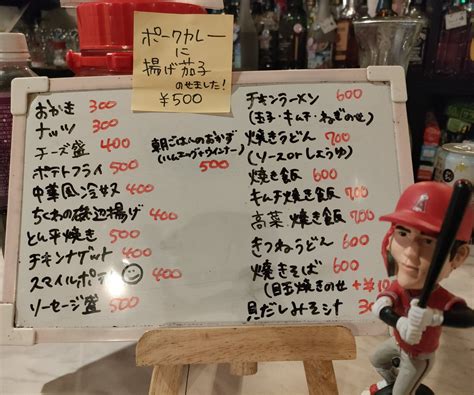 ポークカレー
に
揚げ茄子
のせました!
¥500
おかき 300
ナッツ 300
チーズ盛 400
ポテトフライ 500
中華風冷奴 400
ちくわの磯辺揚げ 400
とん平焼き 500
チキンナゲット 400
スマイルポテ 400
ソーセージ盛 500
朝ごはんのおかず
(ハムエッグ+ウインナー)
500
チキンラーメン 600
(玉子・キムチ・ねぎのせ)
焼きうどん 700
(ソースorしょうゆ)
焼き飯 600
キムチ焼き飯 700
高菜焼き飯 700
きつねうどん 600
焼きそば 600
(目玉焼きのせ +¥10
貝だしみそ汁 30
A